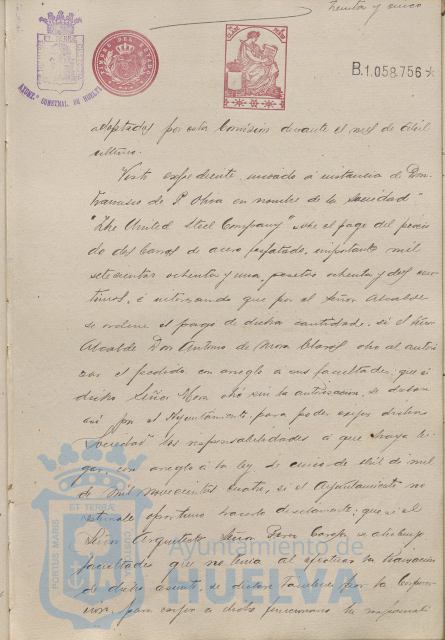 treinta y nueve
TIMBRE DEL ESTADO
AYUNT.º CONSTNAL. DE HUELVA
B.1.058.756
adoptados por esta Comisión durante el mes de Abril
último.
Visto expediente incoado á instancia de Don
Francisco de P. Ohoa en nombre de la Sociedad
"The United Steel Company" sobre el pago del
do del de acero importante mil
setecientas ochenta y una pesetas ochenta y dos cen-
timos, é interesando que por el Señor Alcalde
se ordene el pago de dicha cantidad, si el Señor
Alcalde Don Antonio de Mora Claros obró al autori-
zar el pedido con arreglo á sus facultades; que si
dicho Señor Mora obró sin la autorización, se declare
así por el Ayuntamiento, para poder exigir dicha
Sociedad las responsabilidades á que haya lu-
gar, con arreglo á la ley de cinco de Abril de mil
de mil novecientos cuatro, si el Ayuntamiento no
estimase oportuno hacerlo declarante; que si el
Señor Arquitecto Señor Perez se atribuyó
facultades que no tenía al efectuar la
de dicho asunto, se declare también por la Corpora-
ción, para exigir á dicho funcionario la responsabili
PORTUS MARIS
ET TERRÆ
Ayuntamiento de
HUELVA